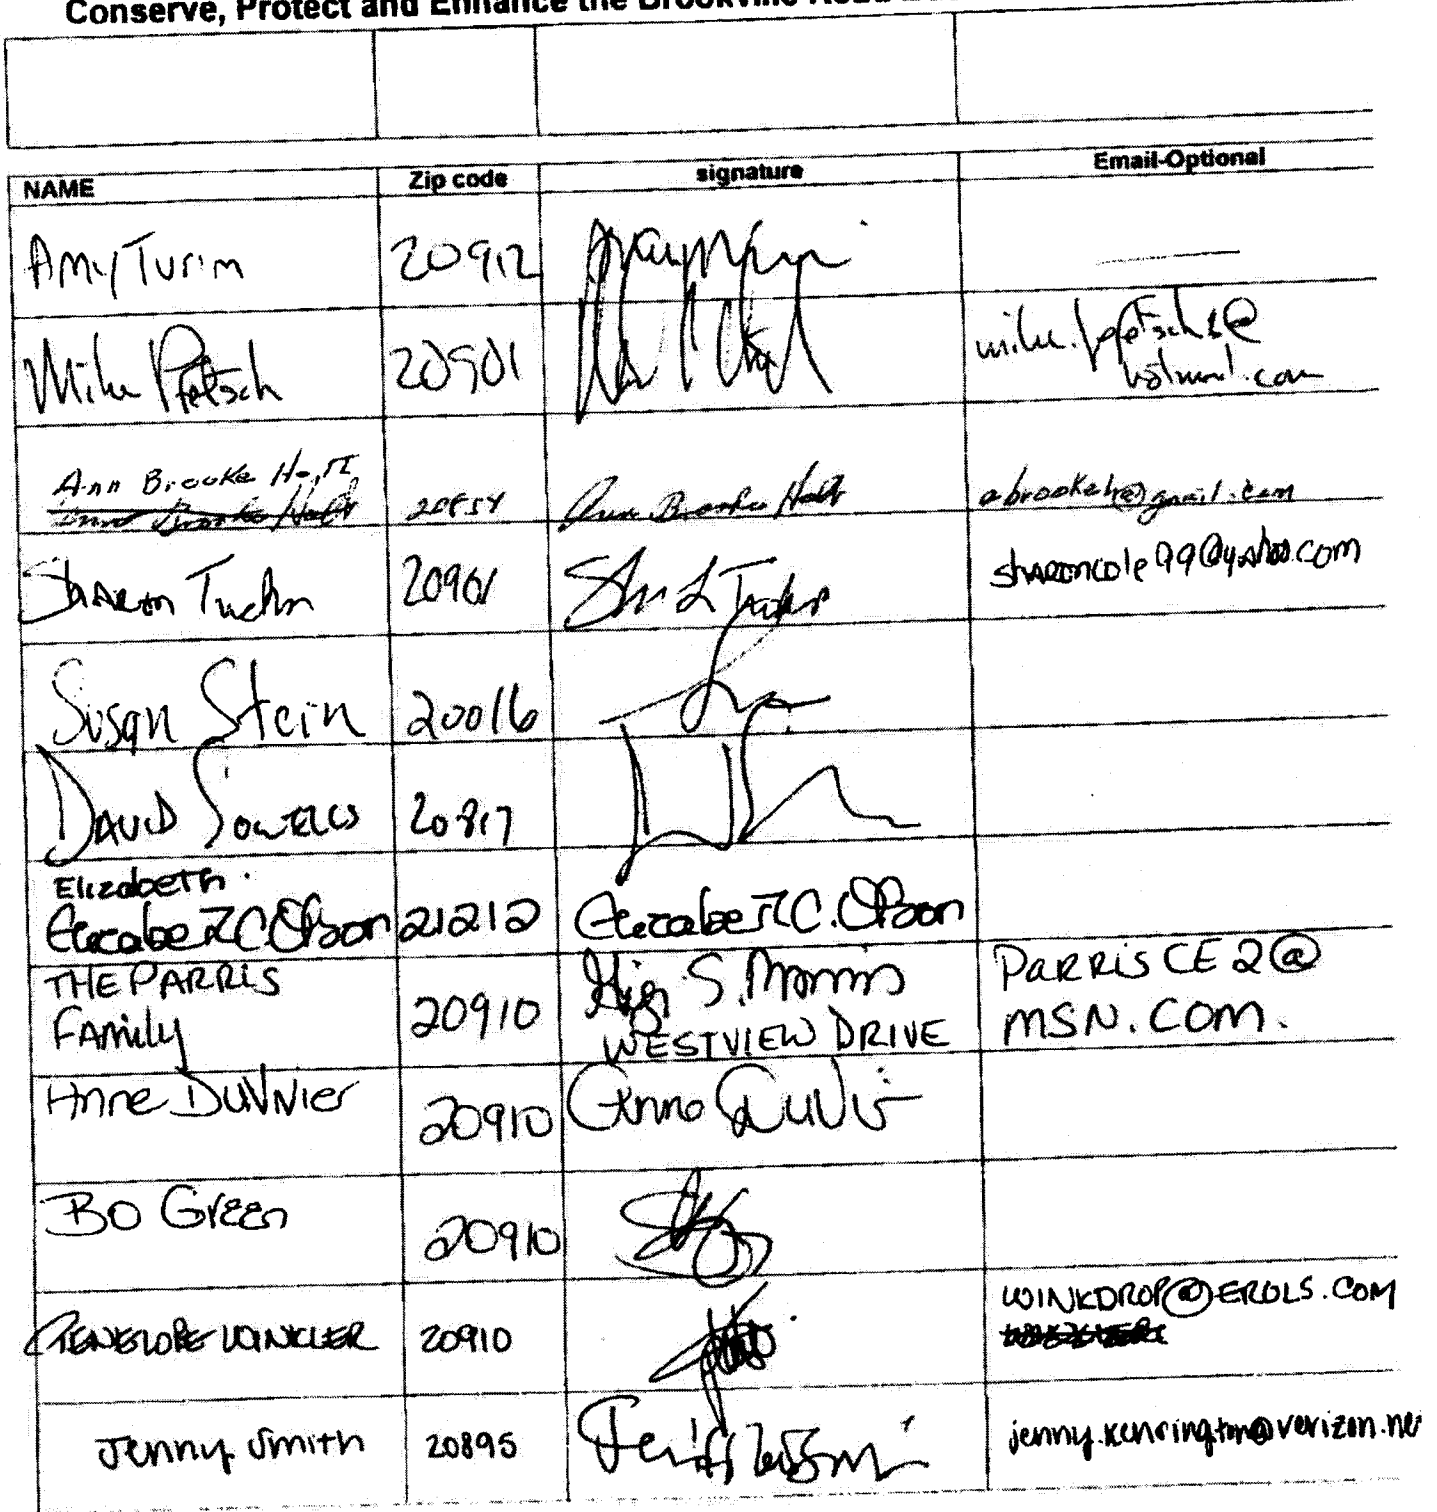 Conserve, Protect and Enhance the Brookville Road
NAME Zip code signature Email-Optional
Amy Turim 20912
Mike Pfetsch 20901
Ann Brooke Holt
Ann Brooke Holt 20854 Ann Brooke Holt abrookeh@gmail.com
Sharon Tucker 20901 sharoncole99@yahoo.com
Susan Stein 20016
David Sowells 20817
Elizabeth
Elizabeth C. Olson 21212 Elizabeth C. Olson
THE PARRIS
Family 20910 S. Morris PARRISCE2@
WESTVIEW DRIVE MSN.COM.
Anne DuVivier 20910 Anne
Bo Green 20910
PENELOPE WINKLER 20910 WINKDROP@EROLS.COM
Jenny Smith 20895 jenny.kensington@verizon.ne